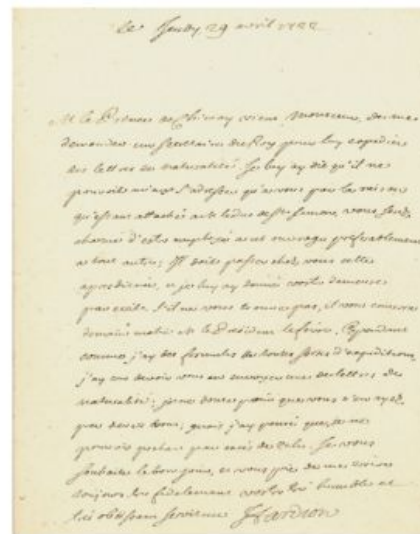 ce Jeudy 29 avril 1722
M. le Prince de Chimay vient, Monsieur, de me
demander un secretaire du Roy pour luy expedier
des lettres de naturalité. Je luy ay dit qu'il ne
pouvoit mieux s'adresser qu'a vous par la raison
qu'estant attaché a M. le duc de St Simon, vous serez
charmé d'estre employé a cet ouvrage preferablement
a tout autre; Il doit passer chez vous cette
apresdinée, et je luy ay donné vostre demeure
par ecrit. S'il ne vous trouve pas, il vous
demain matin M. le President Cependant
comme j'ay des formules de toutes sortes d'expeditions
j'ay cru devoir vous en envoyer une de lettres de
naturalité; je ne doute point que vous n'en ayez
par devers vous; mais j'ay pensé que je ne
pouvois pecher par exces de zele. Je vous
souhaite le bon jour, et vous prie de me croire
toujours tres fidelement vostre tres humble et
tres obeissant serviteur